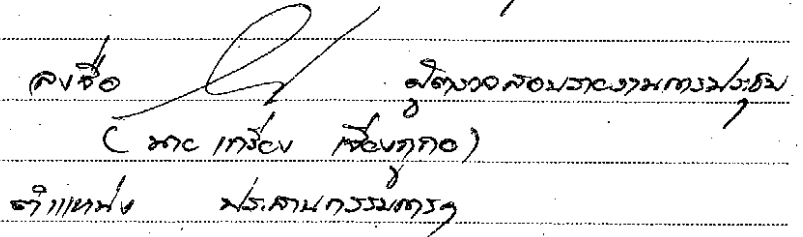 ลงชื่อ ผู้ตรวจสอบรายงานการประชุม
( นาย เกรียง )
ตำแหน่ง ประธานกรรมการฯ